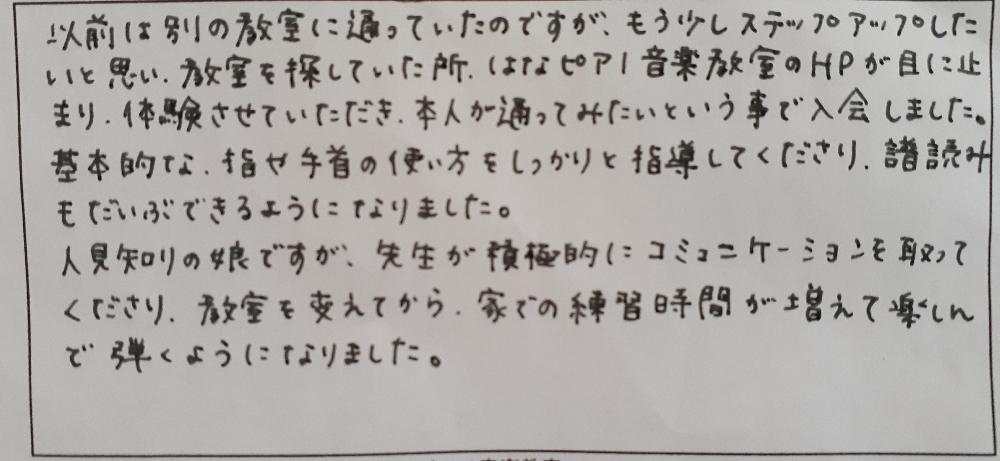 以前は別の教室に通っていたのですが、もう少しステップアップした
いと思い、教室を探していた所、はなピアノ音楽教室のHPが目に止
まり、体験させていただき、本人が通ってみたいという事で入会しました。
基本的な、指や手首の使い方をしっかりと指導してくださり、譜読み
もだいぶできるようになりました。
人見知りの娘ですが、先生が積極的にコミュニケーションを取って
くださり、教室を変えてから、家での練習時間が増えて楽しん
で弾くようになりました。